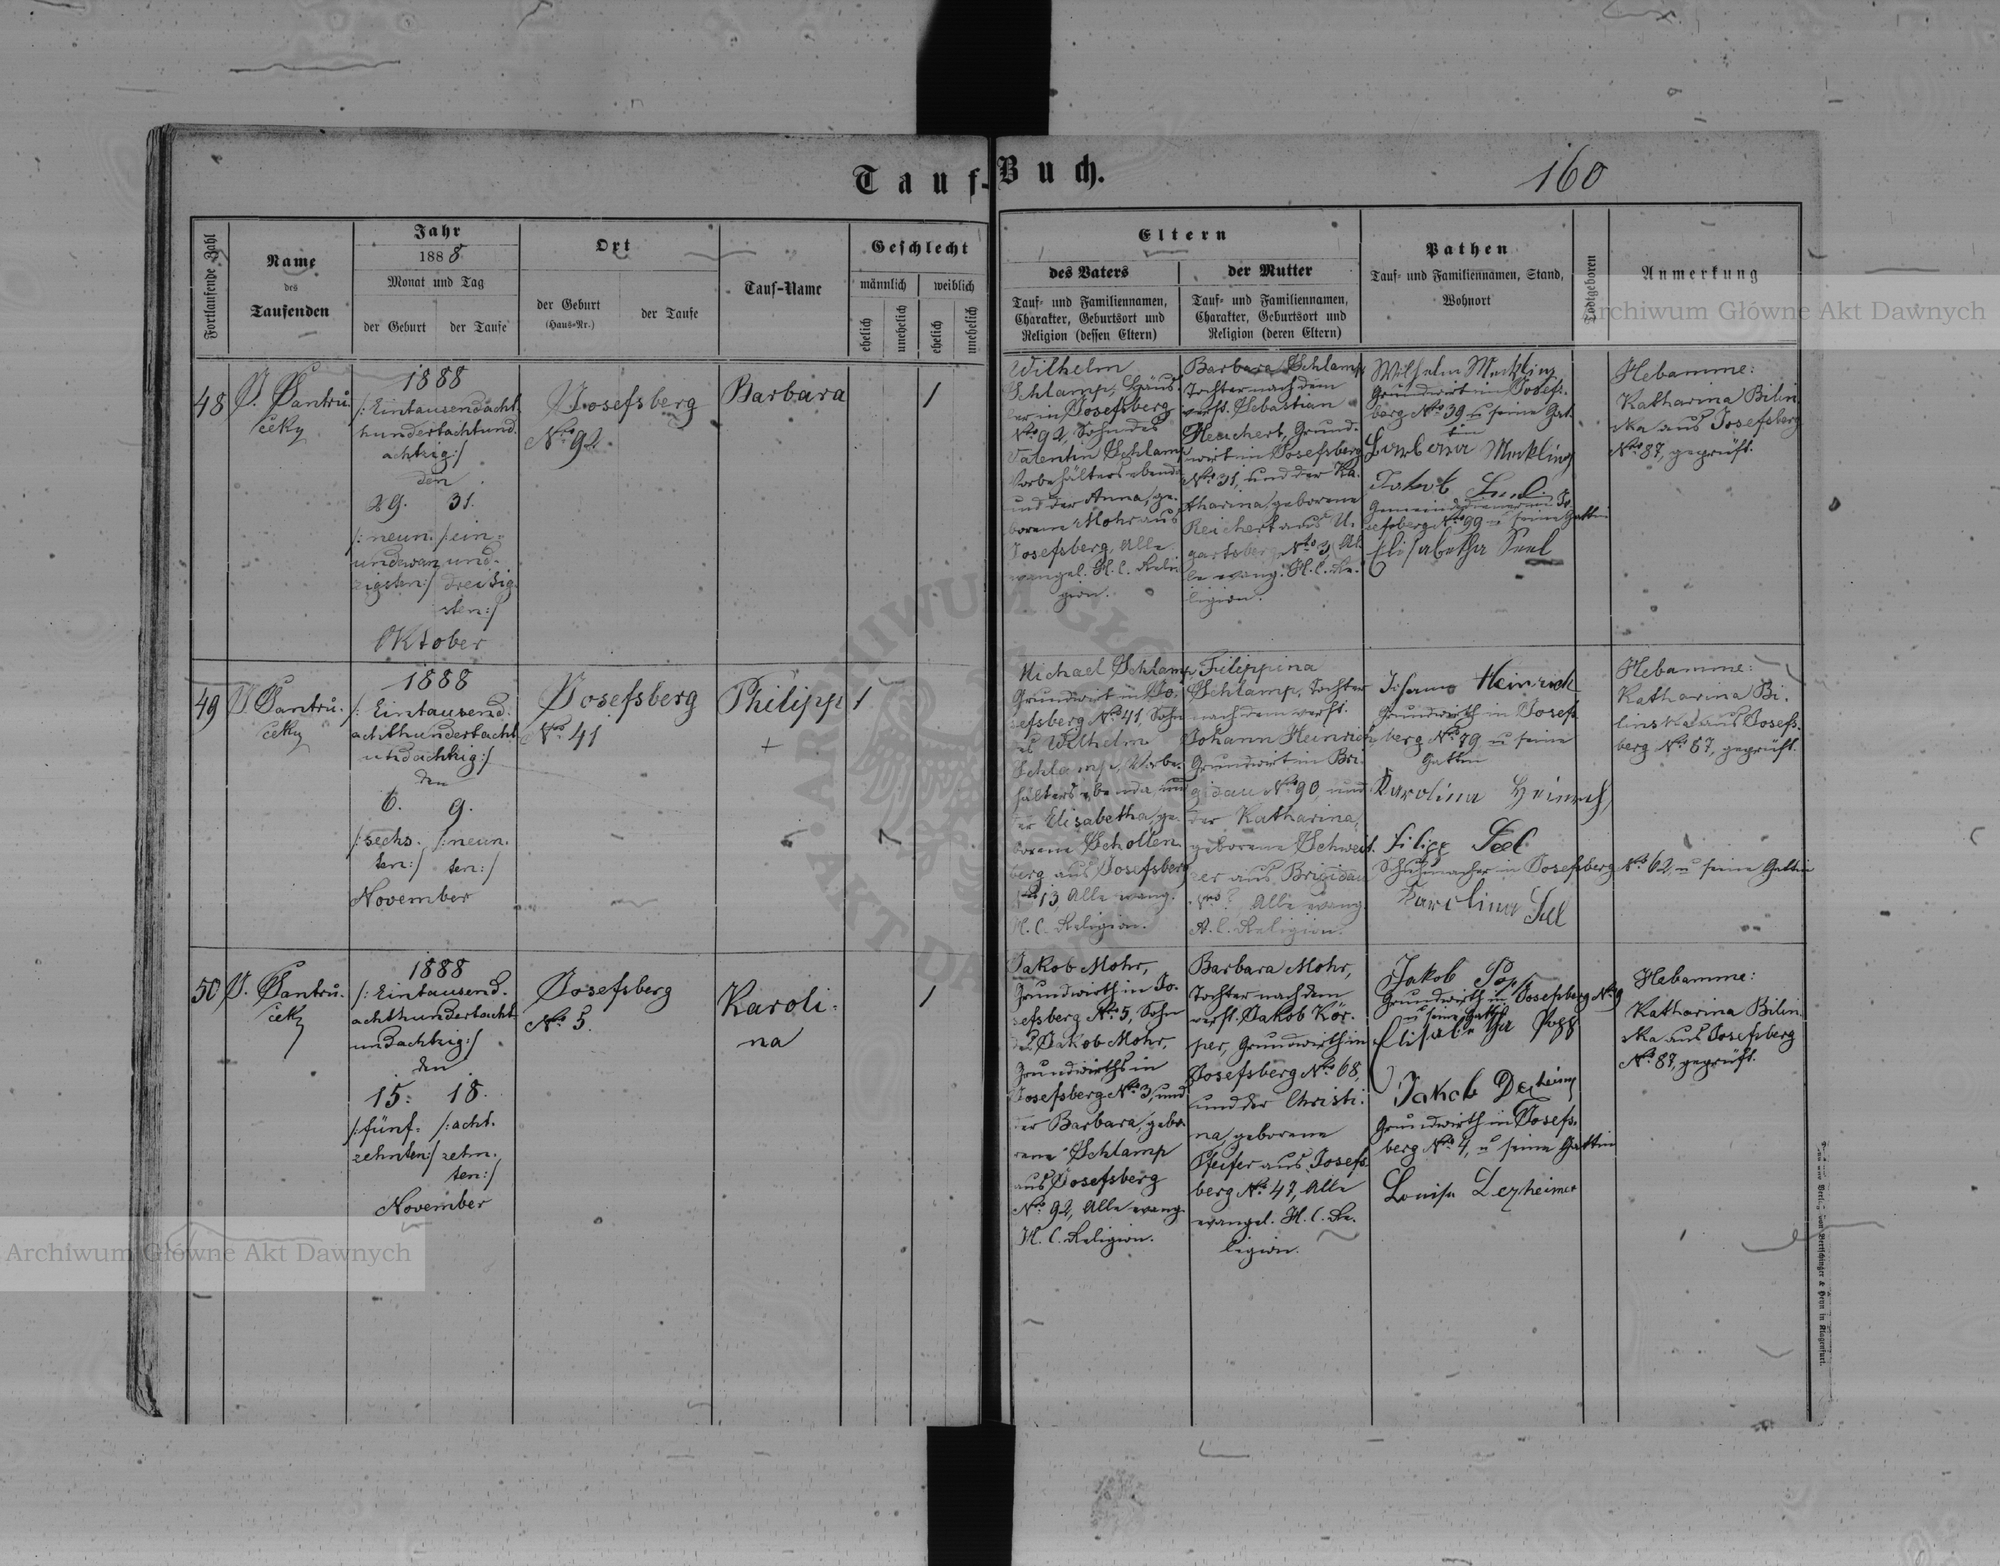 Tauf-Buch.
160
Fortlaufende Zahl
Name
des
Taufenden
Jahr
1888
Monat und Tag
der Geburt
der Taufe
Ort
der Geburt
(Haus-Nr.)
der Taufe
Tauf-Name
Geschlecht
männlich
weiblich
ehelich
unehelich
ehelich
unehelich
Eltern
des Vaters
Tauf- und Familiennamen,
Charakter, Geburtsort und
Religion (dessen Eltern)
der Mutter
Tauf- und Familiennamen,
Charakter, Geburtsort und
Religion (deren Eltern)
Pathen
Tauf- und Familiennamen, Stand,
Wohnort
Todtgeboren
Anmerkung
48
J. Santru-
ček
1888
/: Eintausendacht-
hundertachtund-
achtzig :/
den
29. 31.
/: neun- /: ein-
undzwan- und-
zigsten :/ dreisig-
sten :/
Oktober
Josefsberg
No 92.
Barbara
1
Wilhelm
Schlamp, Häus-
ler in Josefsberg
No 92, Sohn des
Valentin Schlamp
Vorbehälters ebenda
und der Anna, ge-
borene Mohr aus
Josefsberg, Alle
evangel. H. C. Reli-
gion.
Barbara Schlamp
Tochter nach dem
verst. Sebastian
Reichert, Grund-
wirt in Josefsberg
No 31, und der Ka-
tharina, geborene
Reichert aus U-
gartsberg No 3, Al-
le evang. H. C. Re-
ligion.
Wilhelm Meckling
Grundwirt in Josefs-
berg No 39 u seine Gat-
tin
Barbara Meckling
Jakob Seel
Gemeindediener in Jo-
sefsberg No 99 u seine Gattin
Elisabetha Seel
Hebamme:
Katharina Bilin-
ska aus Josefsberg
No 87, geprüft.
49
J. Santru-
ček
1888
/: Eintausend-
achthundertacht-
undachtzig :/
den
6. 9.
/: sechs- /: neun-
ten :/ ten :/
November
Josefsberg
No 41
Philipp
+
1
Michael Schlamp
Grundwirt in Jo-
sefsberg No 41, Sohn
des Wilhelm
Schlamp, Vorbe-
hälters ebenda, und
der Elisabetha, ge-
borene Schollen-
berg aus Josefsberg
No 13, Alle evang.
H. C. Religion.
Filippina
Schlamp, Tochter
nach dem verst.
Johann Heinrich
Grundwirt in Bri-
gidau No 90, und
der Katharina,
geborene Schweit-
zer aus Brigidau
No ?, Alle evang.
A. C. Religion.
Johann Heinrich
Grundwirth in Josefs-
berg No 79 u seine
Gattin
Karolina Heinrich
Filipp Seel
Schuhmacher in Josefsberg No 62, u seine Gattin
Karolina Seel
Hebamme:
Katharina Bi-
linska aus Josefs-
berg No 87, geprüft.
50
J. Santru-
ček
1888
/: Eintausend-
achthundertacht-
undachtzig :/
den
15. 18.
/: fünf- /: acht-
zehnten :/ zehn-
ten :/
November
Josefsberg
No 5.
Karoli-
na
1
Jakob Mohr,
Grundwirth in Jo-
sefsberg No 5, Sohn
des Jakob Mohr,
Grundwirths in
Josefsberg No 3, und
der Barbara, gebo-
rene Schlamp
aus Josefsberg
No 92, Alle evang.
H. C. Religion.
Barbara Mohr,
Tochter nach dem
verst. Jakob Kör-
per, Grundwirth in
Josefsberg No 68,
und der Christi-
na, geborene
Pfeifer aus Josefs-
berg No 47, Alle
evangel. H. C. Re-
ligion.
Jakob Popp
Grundwirth in Josefsberg No 9
u seine Gattin
Elisabetha Popp
Jakob Dezheimer
Grundwirth in Josefs-
berg No 4, u seine Gattin
Louisa Dezheimer
Hebamme:
Katharina Bilin-
ska aus Josefsberg
No 87, geprüft.
Archiwum Główne Akt Dawnych
Archiwum Główne Akt Dawnych
ARCHIWUM GŁÓWNE AKT DAWNYCH